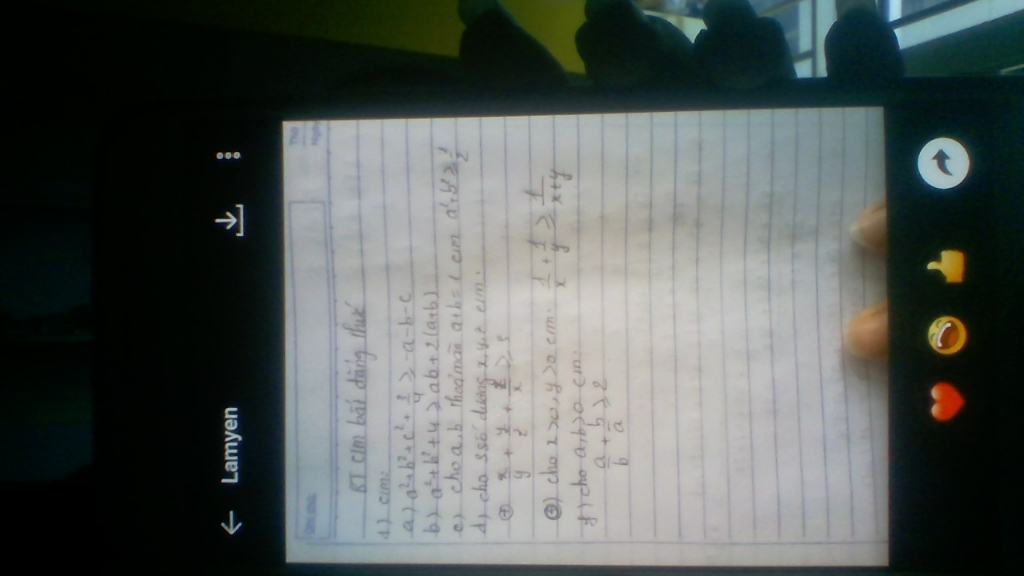 ← Lamyen
BT cm bất đẳng thức
1) cm:
a) a²+b²+c²+3/4 ≥ -a-b-c
b) a²+b²+4 ≥ ab+2(a+b)
c) cho a,b thoả mãn a+b=1 cm a²+b² ≥ 1/2
d) cho 3 số dương x,y,z cm:
x/y + y/z + z/x ≥ 3
e) cho x>0, y>0 cm: 1/x + 1/y ≥ 1/x+y
f) cho a,b>0 cm:
a/b + b/a ≥ 2